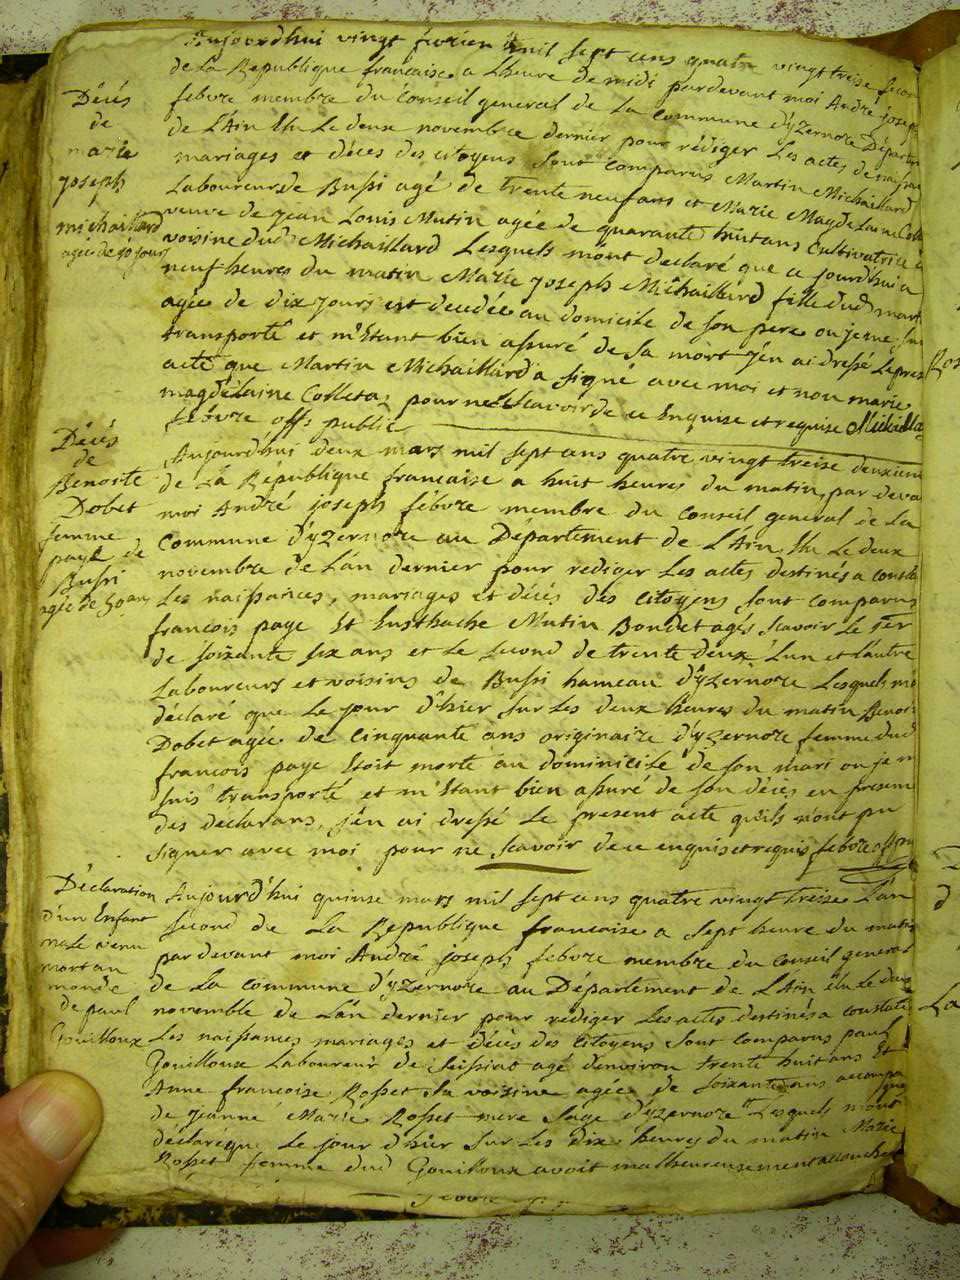 Aujourd'hui vingt fevrier mil sept cens quatre vingt treise second
de La Republique francaise a lheure de midi pardevant moi André joseph
febvre membre du Conseil general de La Commune d'yzernore Départem
de L'Ain Elu Le deux novembre dernier pour rédiger Les actes de
mariages et déces des citoyens sont comparus Martin Michaillard
Laboureur de Bussi agé de trente neuf ans et Marie Magdelaine Colle
veuve de jean Louis Mutin agée de quarante huit ans Cultivatrice
voisine dud Michaillard Lesquels m'ont declaré que ce jourdhui a
neuf heures du matin Marie joseph Michaillard fille dud mart
agée de dix jours est decedée au domicile de son pere ou je me suis
transporté et m'Etant bien assuré de sa mort j'en ai dressé Le pres
acte que Martin Michaillard a signé avec moi et non marie
magdelaine Colleta pour ne Scavoir de ce Enquise et requise Michailla
febvre offr public
Décés
de
marie
joseph
michaillard
agée de 10 jours
Aujourdhui deux mars mil sept cens quatre vingt treise deuxiem
de La République francaise a huit heures du matin, par deva
moi André joseph febvre membre du Conseil general de La
Commune d'yzernore au Département de L'Ain Elu Le deux
novembre de L'an dernier pour rediger Les actes destinés a const
Les naissances, mariages et décés des Citoyens sont comparus
francois paye Et Eusthache Mutin Bondet agés scavoir Le 1er
de soixante six ans et Le second de trente deux L'un et L'autre
Laboureurs et voisins de Bussi hameau d'yzernore Lesquels mo
déclaré que Le jour d'hier sur Les deux heures du matin Benoi
Dobet agée de cinquante ans originaire d'yzernore femme dud
francois paye Etoit morte au dominicile de son mari ou je m
suis transporté et m'Etant bien assuré de son décés en presen
des déclarans, j'en ai dressé Le present acte qu'ils n'ont pu
signer avec moi pour ne scavoir de ce enquis et requis febvre off pu
Décés
de
Benoite
Dobet
femme
paye de
Bussi
agée de 50 ans
Aujourd'hui quinse mars mil sept cens quatre vingt treise L'an
second de La Republique francaise a sept heure du matin
par devant moi André joseph febvre membre du Conseil general
de La commune d'yzernore au Département de L'Ain élu Le deux
novembre de L'an dernier pour rédiger Les actes destinés a constate
Les naissances mariages et décés des Citoyens sont comparus paul
Gouilloux Laboureur de Ceissiat agé d'environ trente huit ans Et
Anne francoise Rosset sa voisine agée de soixante ans accompa
de jeanne Marie Rosset mere sage d'yzernore Lesquels mont
déclaré que Le jour d'hier sur Les dix heures du matin Marie
Rosset femme dud Gouilloux avoit malheureusement accouché
Déclaration
d'un Enfant
male venu
mort au
monde
de paul
Gouilloux